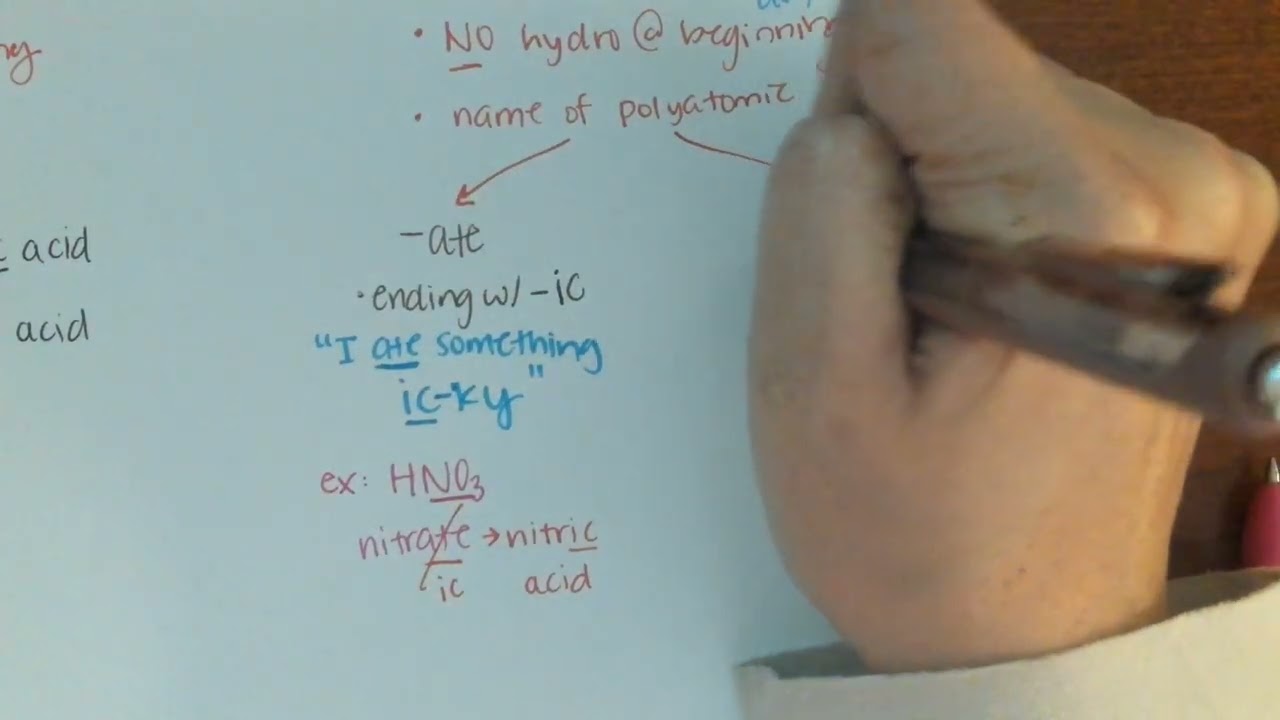 • NO hydro @ beginning
• name of polyatomic
-ate
acid
• ending w/ -ic
acid
"I ate something
ic-ky"
ex: HNO₃
nitrate → nitric
ic acid